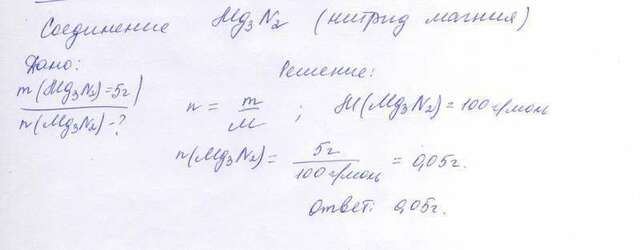 Соединение Mg₃N₂ (нитрид магния)
Дано:
m(Mg₃N₂)=5г
n(Mg₃N₂)-?
Решение:
n = m/M ; M(Mg₃N₂) = 100г/моль
n(Mg₃N₂) = 5г/100г/моль = 0,05г.
Ответ: 0,05г.